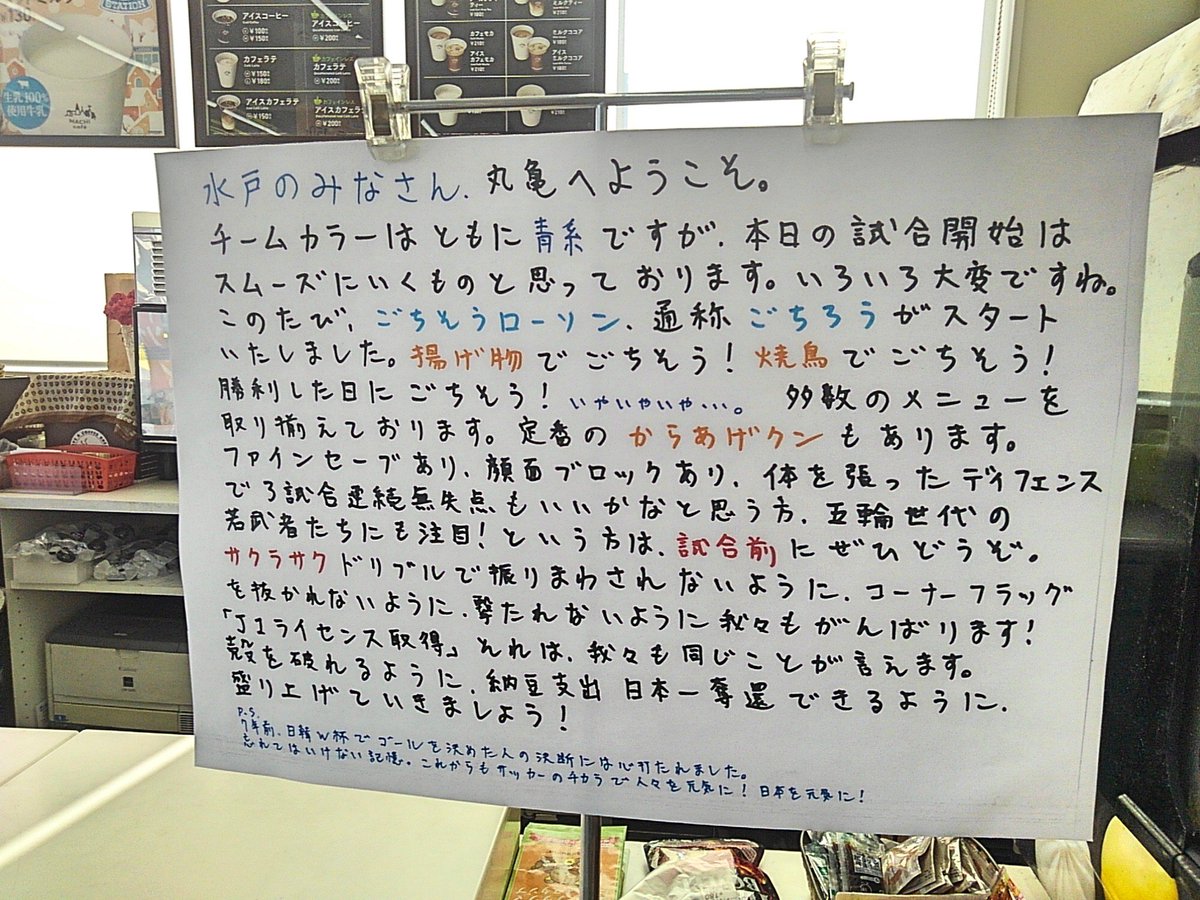 STATION
¥130
生乳100%
使用牛乳
MACHI
café
アイスコーヒー
¥100
¥150
カフェラテ
¥150
アイスカフェラテ
¥150
アイスコーヒー
¥200
カフェラテ
¥200
アイスカフェラテ
¥200
カフェモカ
アイス
カフェモカ
ミルクティー
ミルクココア
アイス
ミルクココア
水戸のみなさん、丸亀へようこそ。
チームカラーはともに青系ですが、本日の試合開始は
スムーズにいくものと思っております。いろいろ大変ですね。
このたび、ごちそうローソン、通称ごちろうがスタート
いたしました。揚げ物でごちそう！焼鳥でごちそう！
勝利した日にごちそう！いやいやいや…。 多数のメニューを
取り揃えております。定番のからあげクンもあります。
ファインセーブあり、顔面ブロックあり、体を張ったディフェンス
で3試合連続無失点もいいかなと思う方、五輪世代の
若武者たちにも注目！という方は、試合前にぜひどうぞ。
サクラサクドリブルで振りまわされないように、コーナーフラッグ
を抜かれないように、撃たれないように我々もがんばります！
「J1ライセンス取得」それは、我々も同じことが言えます。
殻を破れるように、納豆支出日本一奪還できるように、
盛り上げていきましょう！
P.S.
7年前、日韓W杯でゴールを決めた人の決断には心打たれました。
忘れてはいけない記憶。これからもサッカーのチカラで人々を元気に！日本を元気に！